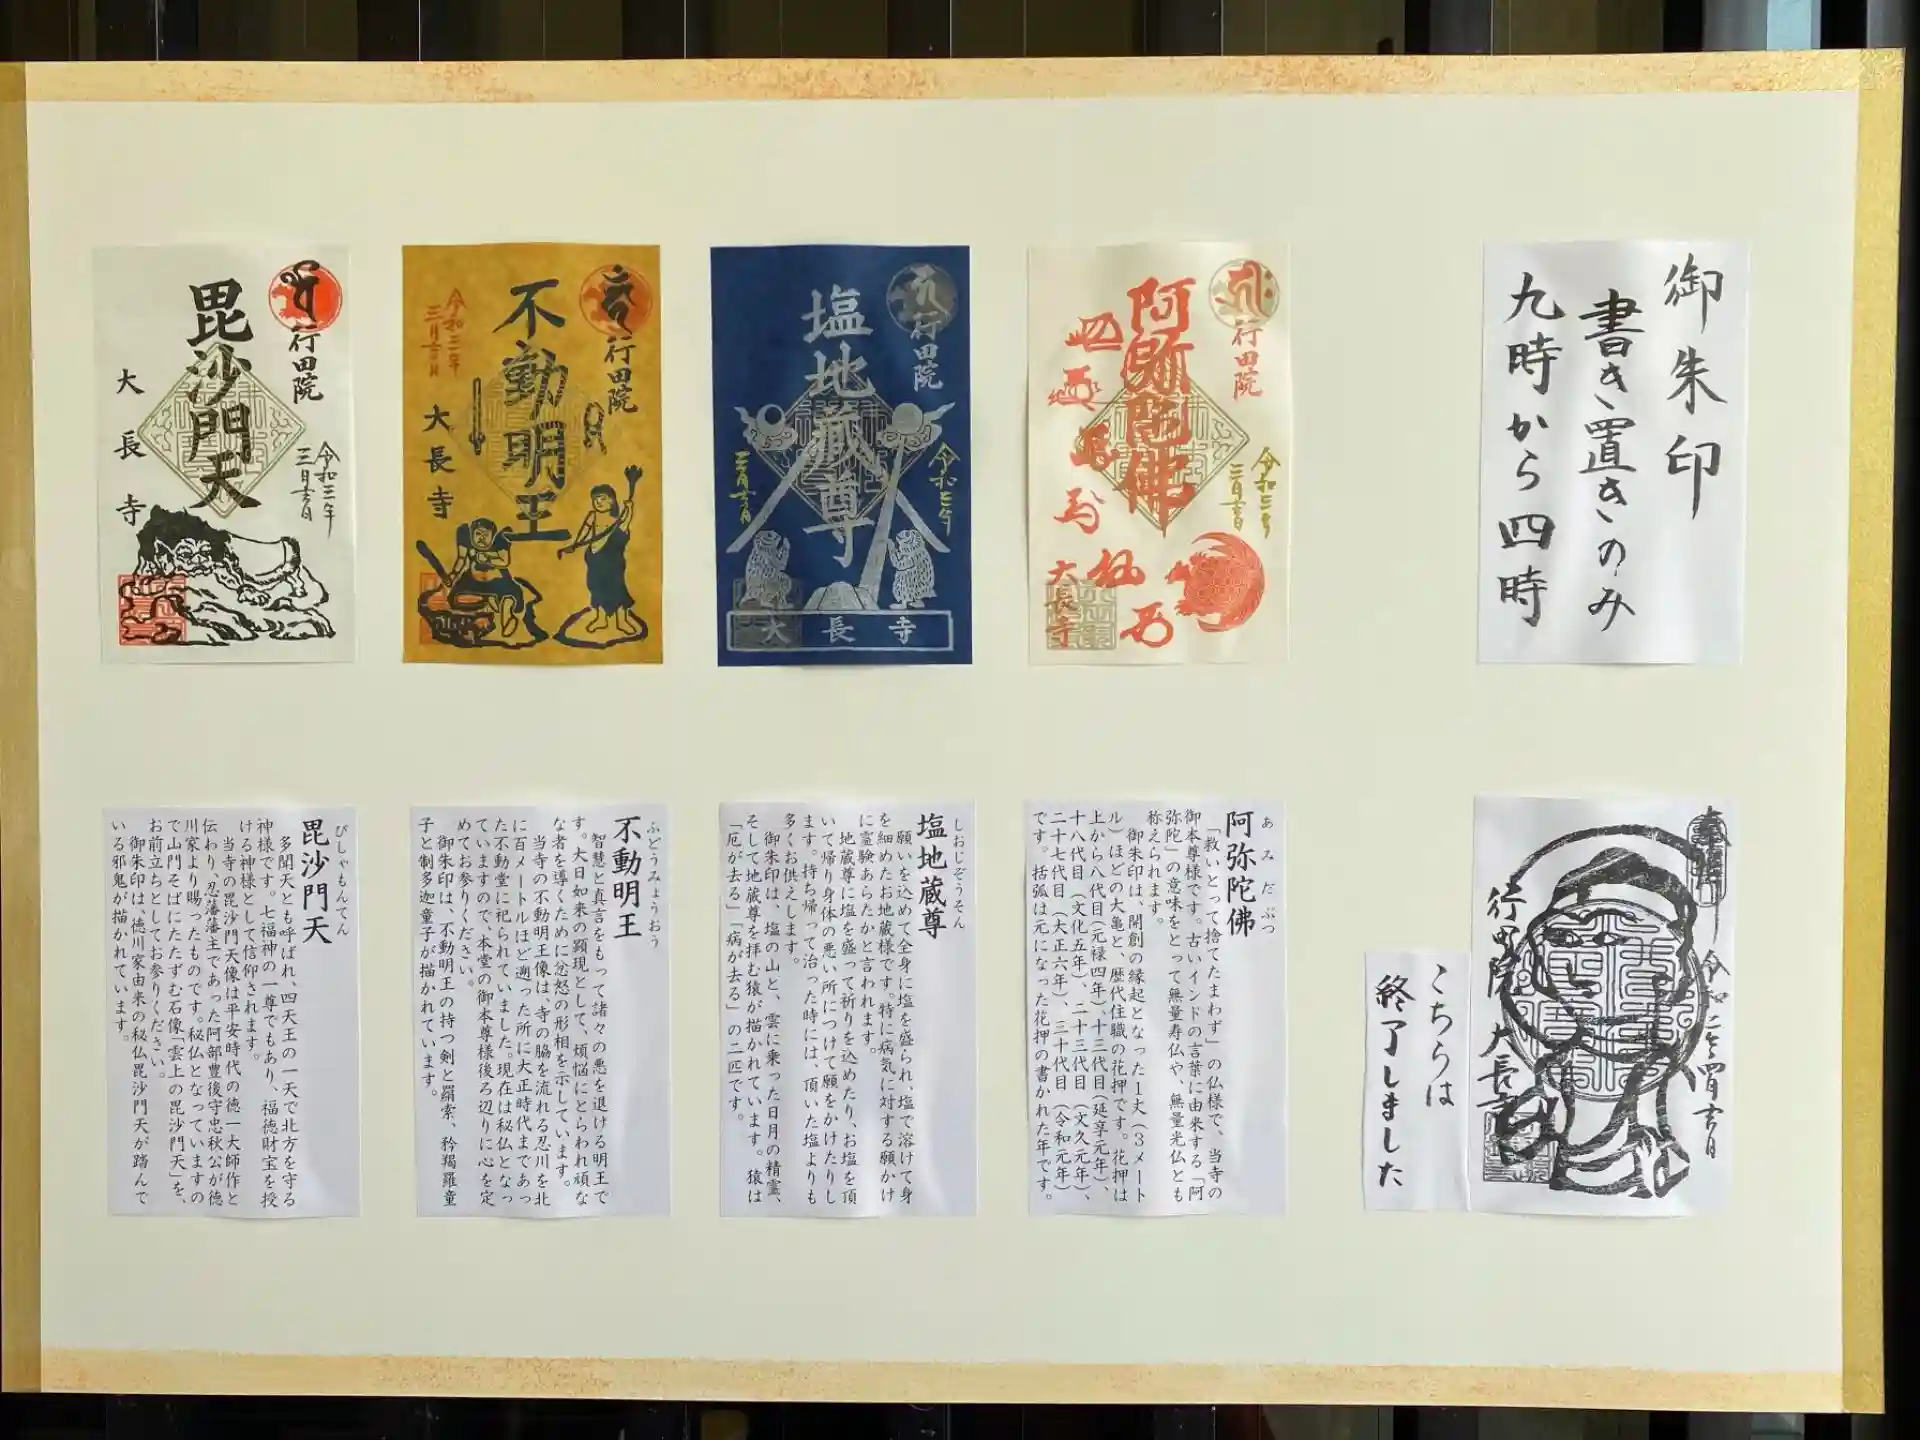 御朱印
書き置きのみ
九時から四時
行田院
阿弥陀佛
令和三年
三月吉日
大長寺
行田院
塩地蔵尊
令和三年
三月吉日
大長寺
行田院
不動明王
令和三年
三月吉日
大長寺
行田院
毘沙門天
令和三年
三月吉日
大長寺
令和二年四月吉日
行田院
大長寺
こちらは
終了しました
あみだぶつ
阿弥陀佛
「救いとって捨てたまわず」の仏様で、当寺の
御本尊様です。古いインドの言葉に由来する「阿
弥陀」の意味をとって無量寿仏や、無量光仏とも
称えられます。
御朱印は、開創の縁起となった1丈(3メート
ル)ほどの大亀と、歴代住職の花押です。花押は
上から八代目(元禄四年)、十三代目(延享元年)、
十八代目(文化五年)、二十三代目(文久元年)、
二十七代目(大正六年)、三十代目(令和元年)
です。括弧は元になった花押の書かれた年です。
しおじぞうそん
塩地蔵尊
願いを込めて全身に塩を盛られ、塩で溶けて身
を細めたお地蔵様です。特に病気に対する願かけ
に霊験あらたかと言われます。
地蔵尊に塩を盛って祈りを込めたり、お塩を頂
いて帰り身体の悪い所につけて願をかけたりし
ます。持ち帰って治った時には、頂いた塩よりも
多くお供えします。
御朱印は、塩の山と、雲に乗った日月の精霊、
そして地蔵尊を拝む猿が描かれています。猿は
「厄が去る」「病が去る」の二匹です。
ふどうみょうおう
不動明王
智慧と真言をもって諸々の悪を退ける明王で
す。大日如来の顕現として、煩悩にとらわれ頑な
な者を導くために忿怒の形相を示しています。
当寺の不動明王像は、寺の脇を流れる忍川を北
に百メートルほど遡った所に大正時代まであっ
た不動堂に祀られていました。現在は秘仏となっ
ていますので、本堂の御本尊様後ろ辺りに心を定
めてお参りください。
御朱印は、不動明王の持つ剣と羂索、矜羯羅童
子と制多迦童子が描かれています。
びしゃもんてん
毘沙門天
多聞天とも呼ばれ、四天王の一天で北方を守る
神様です。七福神の一尊でもあり、福徳財宝を授
ける神様として信仰されます。
当寺の毘沙門天像は平安時代の徳一大師作と
伝わり、忍藩藩主であった阿部豊後守忠秋公が徳
川家より賜ったものです。秘仏となっていますの
で山門そばにたたずむ石像「雲上の毘沙門天」を、
お前立ちとしてお参りください。
御朱印は、徳川家由来の秘仏毘沙門天が踏んで
いる邪鬼が描かれています。